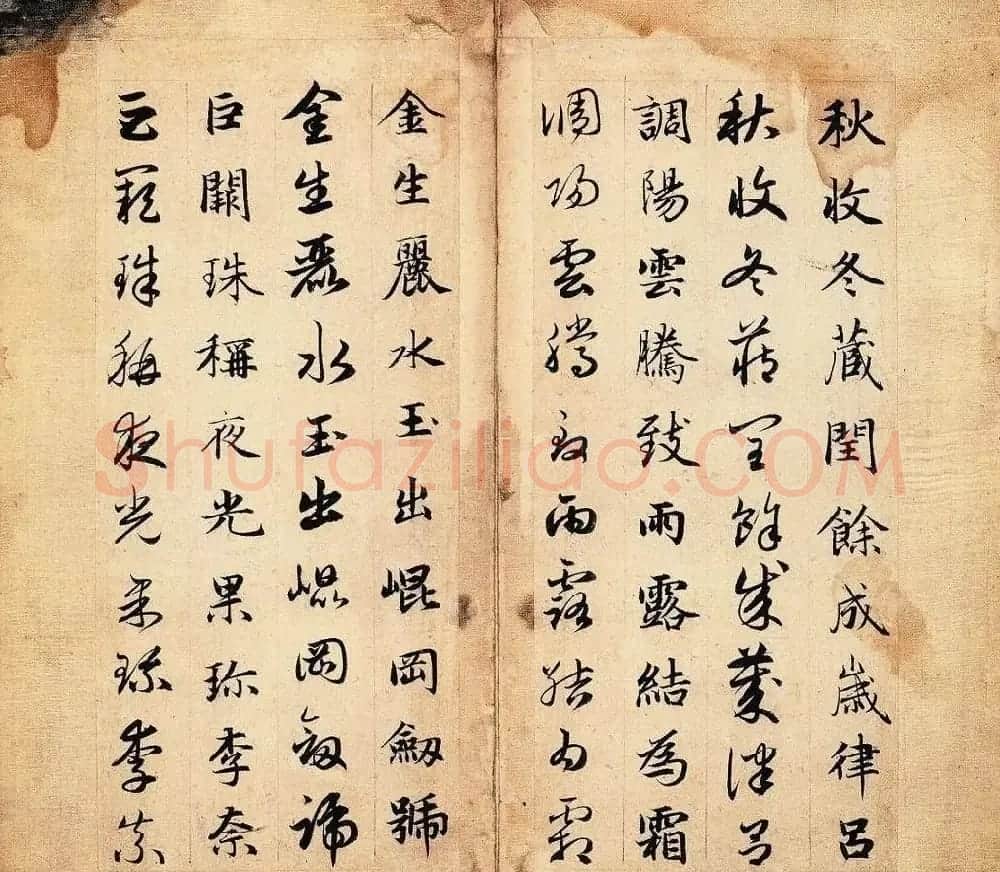 秋收冬藏閏餘成歲律呂
秋收冬藏閏餘成歲律呂
調陽雲騰致雨露結為霜
調陽雲騰致雨露結為霜
金生麗水玉出崐岡劒號
金生麗水玉出崐岡劒號
巨闕珠稱夜光果珎李柰
巨闕珠稱夜光果珎李柰
Shufaziliao.COM